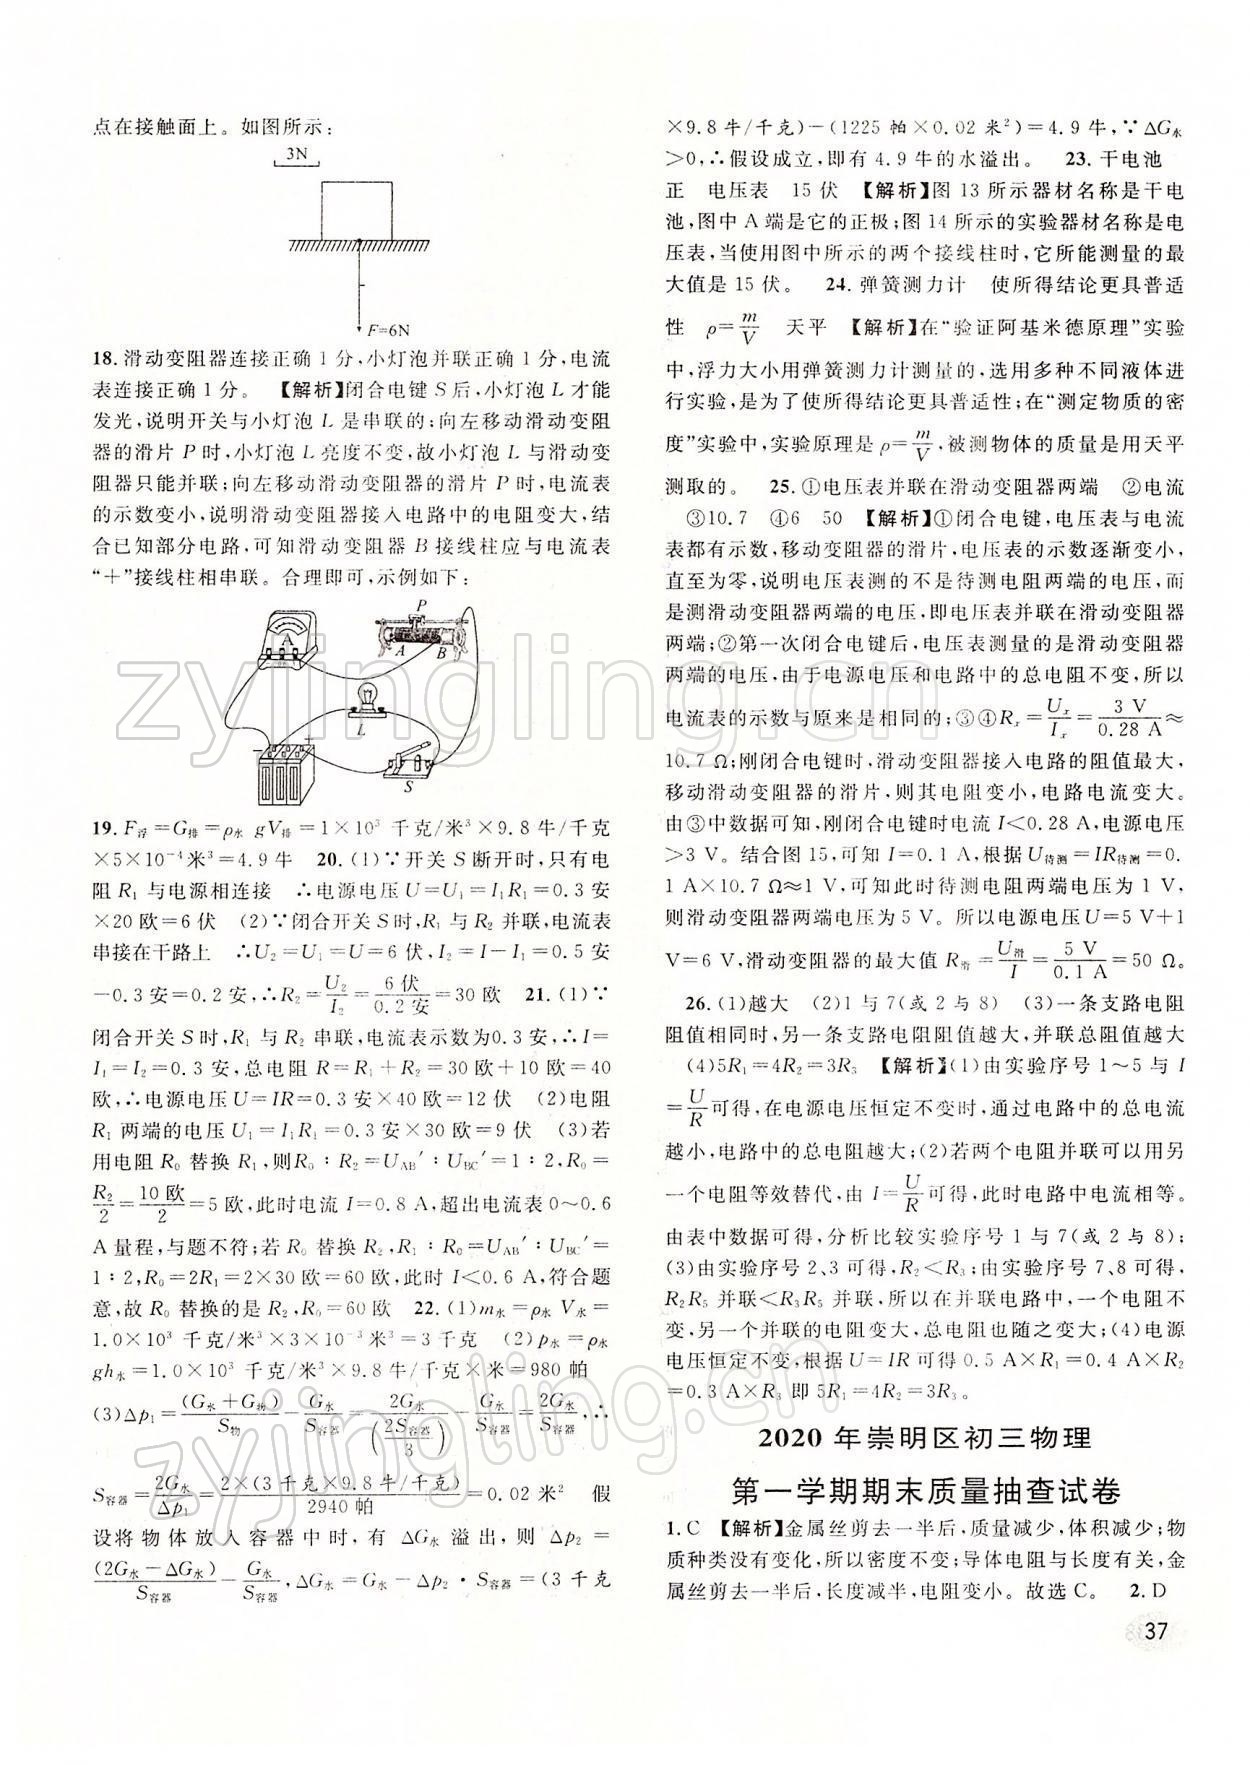 点在接触面上。如图所示：
3N
F=6N
18.滑动变阻器连接正确1分,小灯泡并联正确1分,电流
表连接正确1分。 【解析】闭合电键S后,小灯泡L才能
发光,说明开关与小灯泡L是串联的;向左移动滑动变阻
器的滑片P时,小灯泡L亮度不变,故小灯泡L与滑动变
阻器只能并联;向左移动滑动变阻器的滑片P时,电流表
的示数变小,说明滑动变阻器接入电路中的电阻变大,结
合已知部分电路,可知滑动变阻器B接线柱应与电流表
“+”接线柱相串联。合理即可,示例如下：
A P A B L S − +
19.F浮=G排=ρ水 gV排=1×10³ 千克/米³×9.8牛/千克
×5×10⁻⁴米³=4.9牛 20.(1)∵开关S断开时,只有电
阻R₁与电源相连接 ∴电源电压U=U₁=I₁R₁=0.3安
×20欧=6伏 (2)∵闭合开关S时,R₁与R₂并联,电流表
串接在干路上 ∴U₂=U₁=U=6伏,I₂=I−I₁=0.5安
−0.3安=0.2安,∴R₂=U₂/I₂=6伏/0.2安=30欧 21.(1)∵
闭合开关S时,R₁与R₂串联,电流表示数为0.3安,∴I=
I₁=I₂=0.3安,总电阻R=R₁+R₂=30欧+10欧=40
欧,∴电源电压U=IR=0.3安×40欧=12伏 (2)电阻
R₁两端的电压U₁=I₁R₁=0.3安×30欧=9伏 (3)若
用电阻R₀替换R₁,则R₀：R₂=UAB′：UBC′=1：2,R₀=
R₂/2=10欧/2=5欧,此时电流I=0.8 A,超出电流表0~0.6
A量程,与题不符;若R₀替换R₂,R₁：R₀=UAB′：UBC′=
1：2,R₀=2R₁=2×30欧=60欧,此时I<0.6 A,符合题
意,故R₀替换的是R₂,R₀=60欧 22.(1)m水=ρ水V水=
1.0×10³ 千克/米³×3×10⁻³米³=3千克 (2)p水=ρ水
gh水=1.0×10³ 千克/米³×9.8牛/千克×米=980帕
(3)Δp₁=(G水+G物)/S物−G水/S容器=2G水/(2S容器/3)−G水/S容器=2G水/S容器,∴
S容器=2G水/Δp₁=2×(3千克×9.8牛/千克)/2940帕=0.02米² 假
设将物体放入容器中时,有ΔG水溢出,则Δp₂=
(2G水−ΔG水)/S容器−G水/S容器,ΔG水=G水−Δp₂·S容器=(3千克
×9.8牛/千克)−(1225帕×0.02米²)=4.9牛,∵ΔG水
>0,∴假设成立,即有4.9牛的水溢出。 23.干电池
正 电压表 15伏 【解析】图13所示器材名称是干电
池,图中A端是它的正极;图14所示的实验器材名称是电
压表,当使用图中所示的两个接线柱时,它所能测量的最
大值是15伏。 24.弹簧测力计 使所得结论更具普适
性 ρ=m/V 天平 【解析】在“验证阿基米德原理”实验
中,浮力大小用弹簧测力计测量的,选用多种不同液体进
行实验,是为了使所得结论更具普适性;在“测定物质的密
度”实验中,实验原理是ρ=m/V,被测物体的质量是用天平
测取的。 25.①电压表并联在滑动变阻器两端 ②电流
③10.7 ④6 50 【解析】①闭合电键,电压表与电流
表都有示数,移动变阻器的滑片,电压表的示数逐渐变小,
直至为零,说明电压表测的不是待测电阻两端的电压,而
是测滑动变阻器两端的电压,即电压表并联在滑动变阻器
两端;②第一次闭合电键后,电压表测量的是滑动变阻器
两端的电压,由于电源电压和电路中的总电阻不变,所以
电流表的示数与原来是相同的;③④Rₓ=Uₓ/Iₓ=3 V/0.28 A≈
10.7 Ω;刚闭合电键时,滑动变阻器接入电路的阻值最大,
移动滑动变阻器的滑片,则其电阻变小,电路电流变大。
由③中数据可知,刚闭合电键时电流I<0.28 A,电源电压
>3 V。结合图15,可知I=0.1 A,根据U待测=IR待测=0.
1 A×10.7 Ω≈1 V,可知此时待测电阻两端电压为1 V,
则滑动变阻器两端电压为5 V。所以电源电压U=5 V+1
V=6 V,滑动变阻器的最大值R滑=U滑/I=5 V/0.1 A=50 Ω。
26.(1)越大 (2)1与7(或2与8) (3)一条支路电阻
阻值相同时,另一条支路电阻阻值越大,并联总阻值越大
(4)5R₁=4R₂=3R₃ 【解析】(1)由实验序号1~5与I
=U/R可得,在电源电压恒定不变时,通过电路中的总电流
越小,电路中的总电阻越大;(2)若两个电阻并联可以用另
一个电阻等效替代,由I=U/R可得,此时电路中电流相等。
由表中数据可得,分析比较实验序号1与7(或2与8);
(3)由实验序号2、3可得,R₂<R₃;由实验序号7、8可得,
R₂R₅并联<R₃R₅并联,所以在并联电路中,一个电阻不
变,另一个并联的电阻变大,总电阻也随之变大;(4)电源
电压恒定不变,根据U=IR可得0.5 A×R₁=0.4 A×R₂
=0.3 A×R₃即5R₁=4R₂=3R₃。
2020年崇明区初三物理
第一学期期末质量抽查试卷
1.C 【解析】金属丝剪去一半后,质量减少,体积减少;物
质种类没有变化,所以密度不变;导体电阻与长度有关,金
属丝剪去一半后,长度减半,电阻变小。故选C。 2.D
37
zyjingling.cn
zyjingling.cn